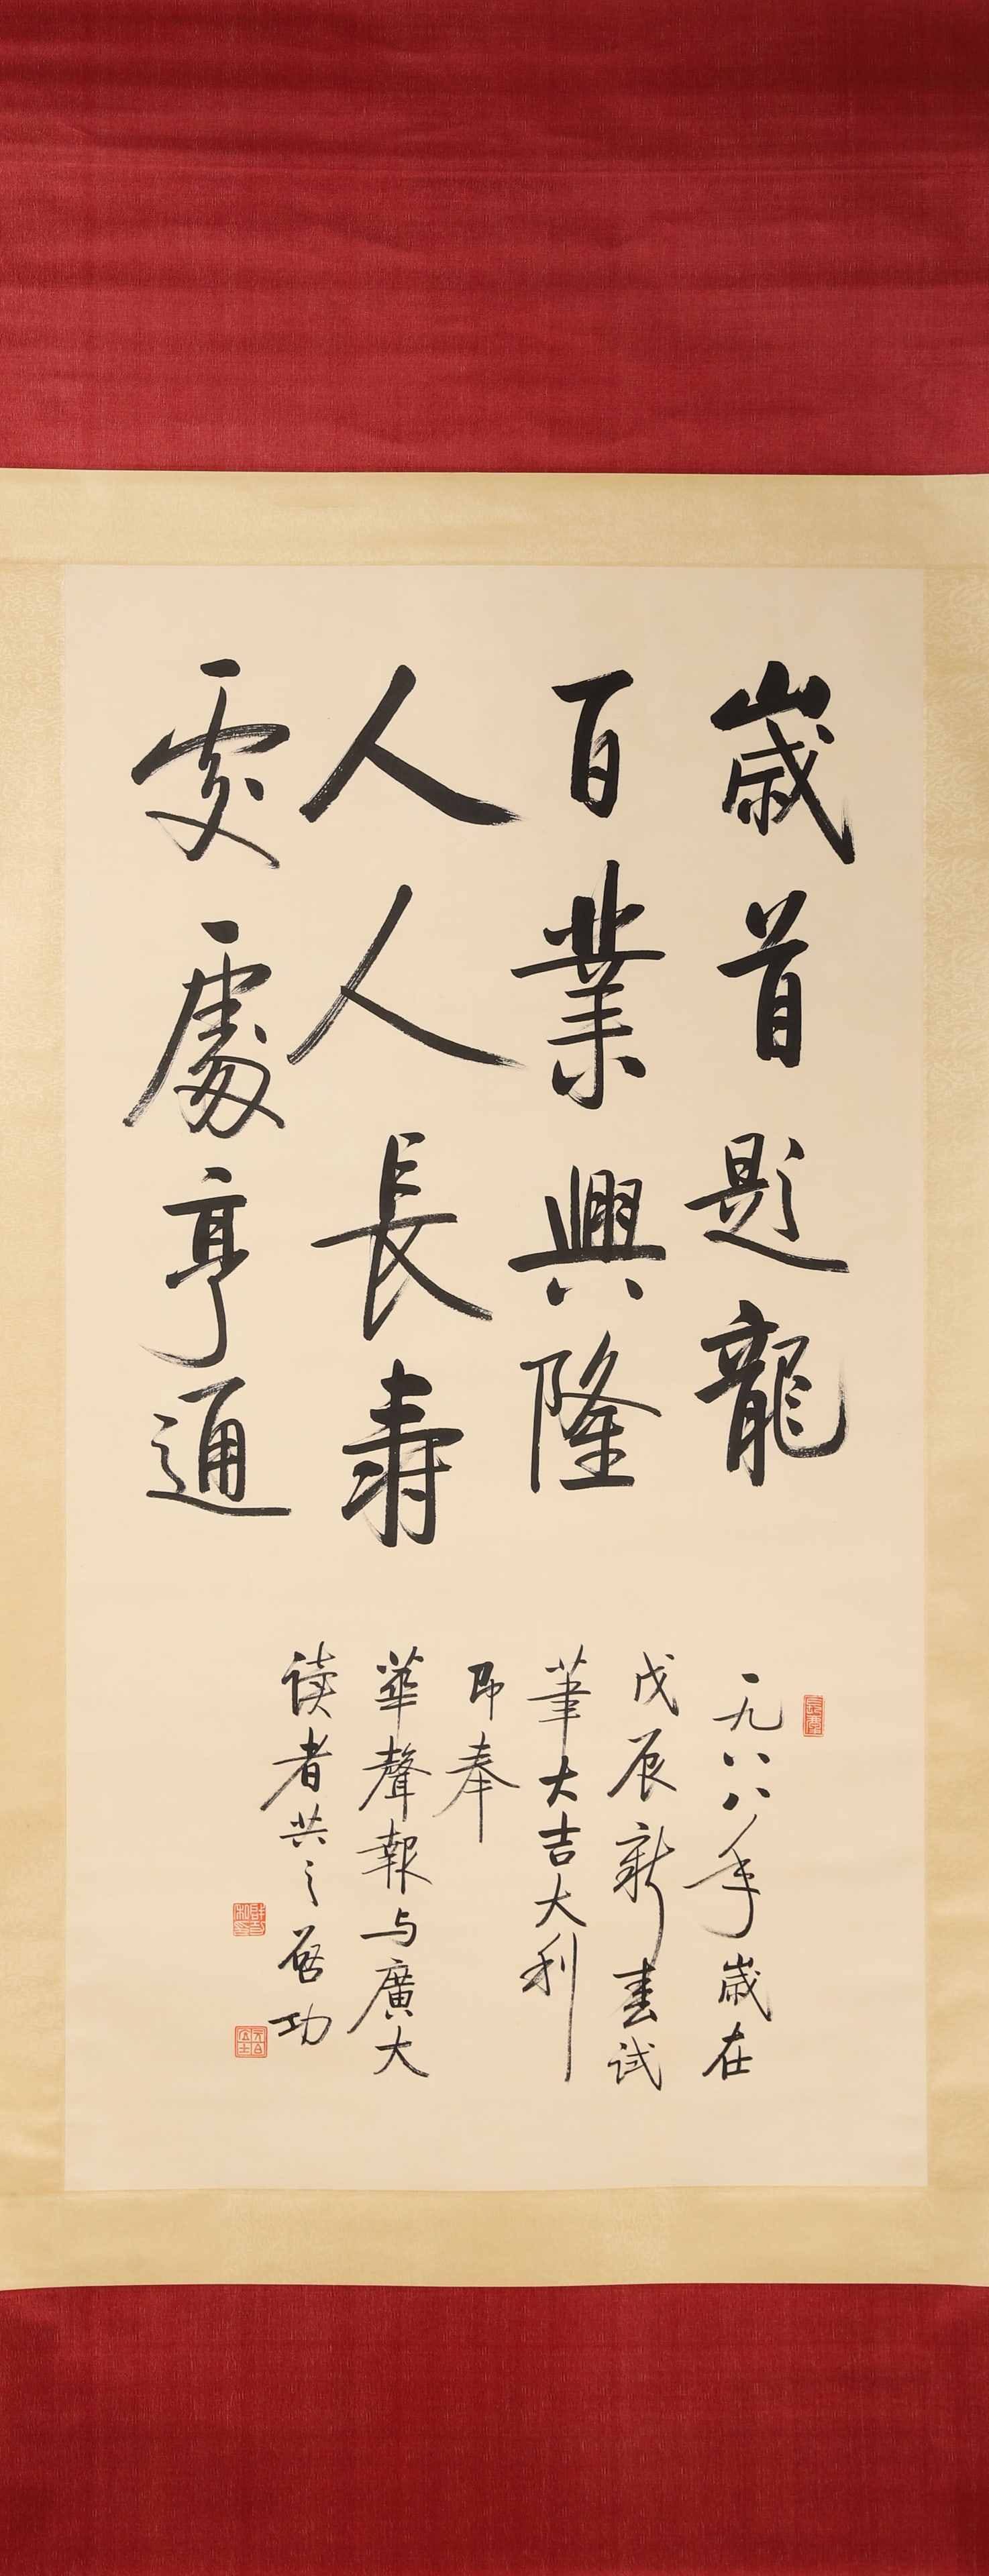 歲首題龍
百業興隆
人人長壽
處處亨通
一九八八年歲在
戊辰新春試
筆大吉大利
即奉
華聲報与廣大
读者共之 启功